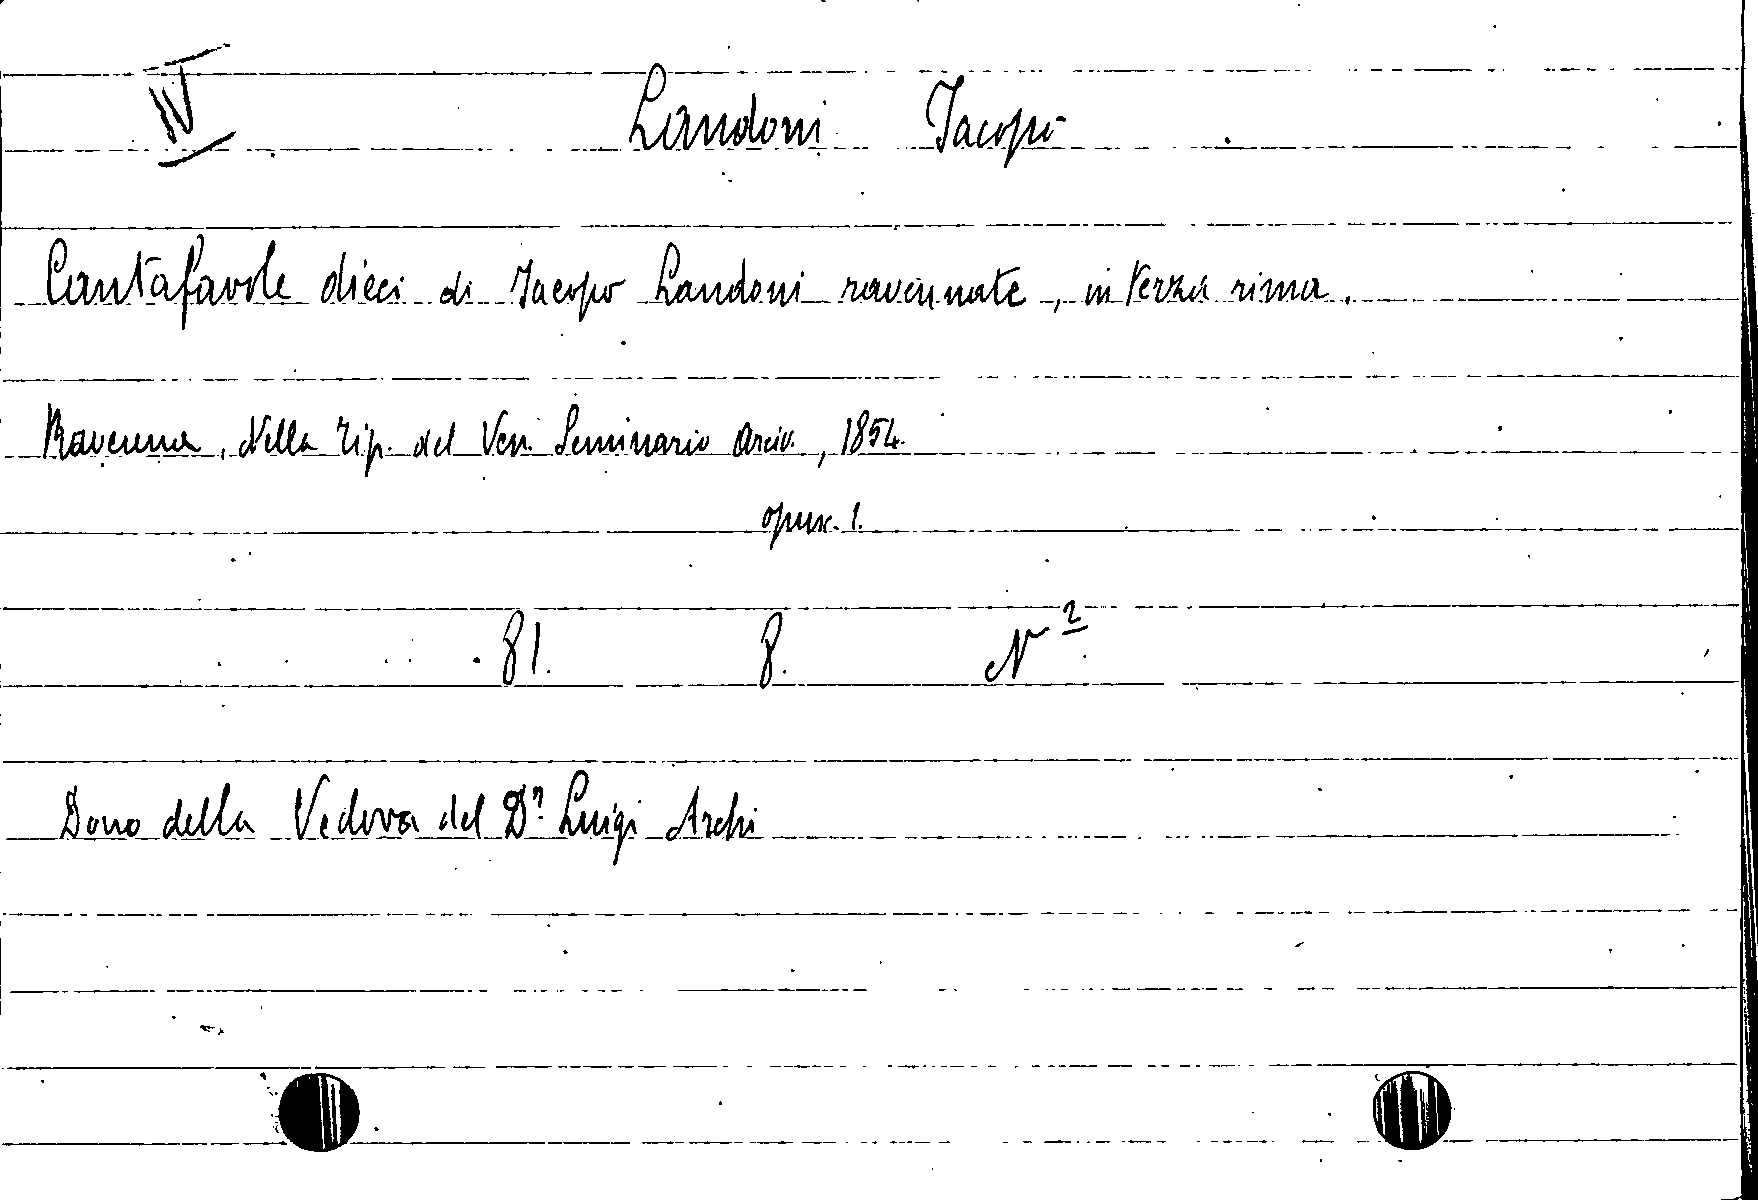 IV
Landoni Jacopo
Cantafavole dieci di Jacopo Landoni ravennate, in terza rima.
Ravenna, Nella Tip. del Ven. Seminario Arciv., 1854.
opus. 1.
81. 8. N 2
Dono della Vedova del Dr. Luigi Archi